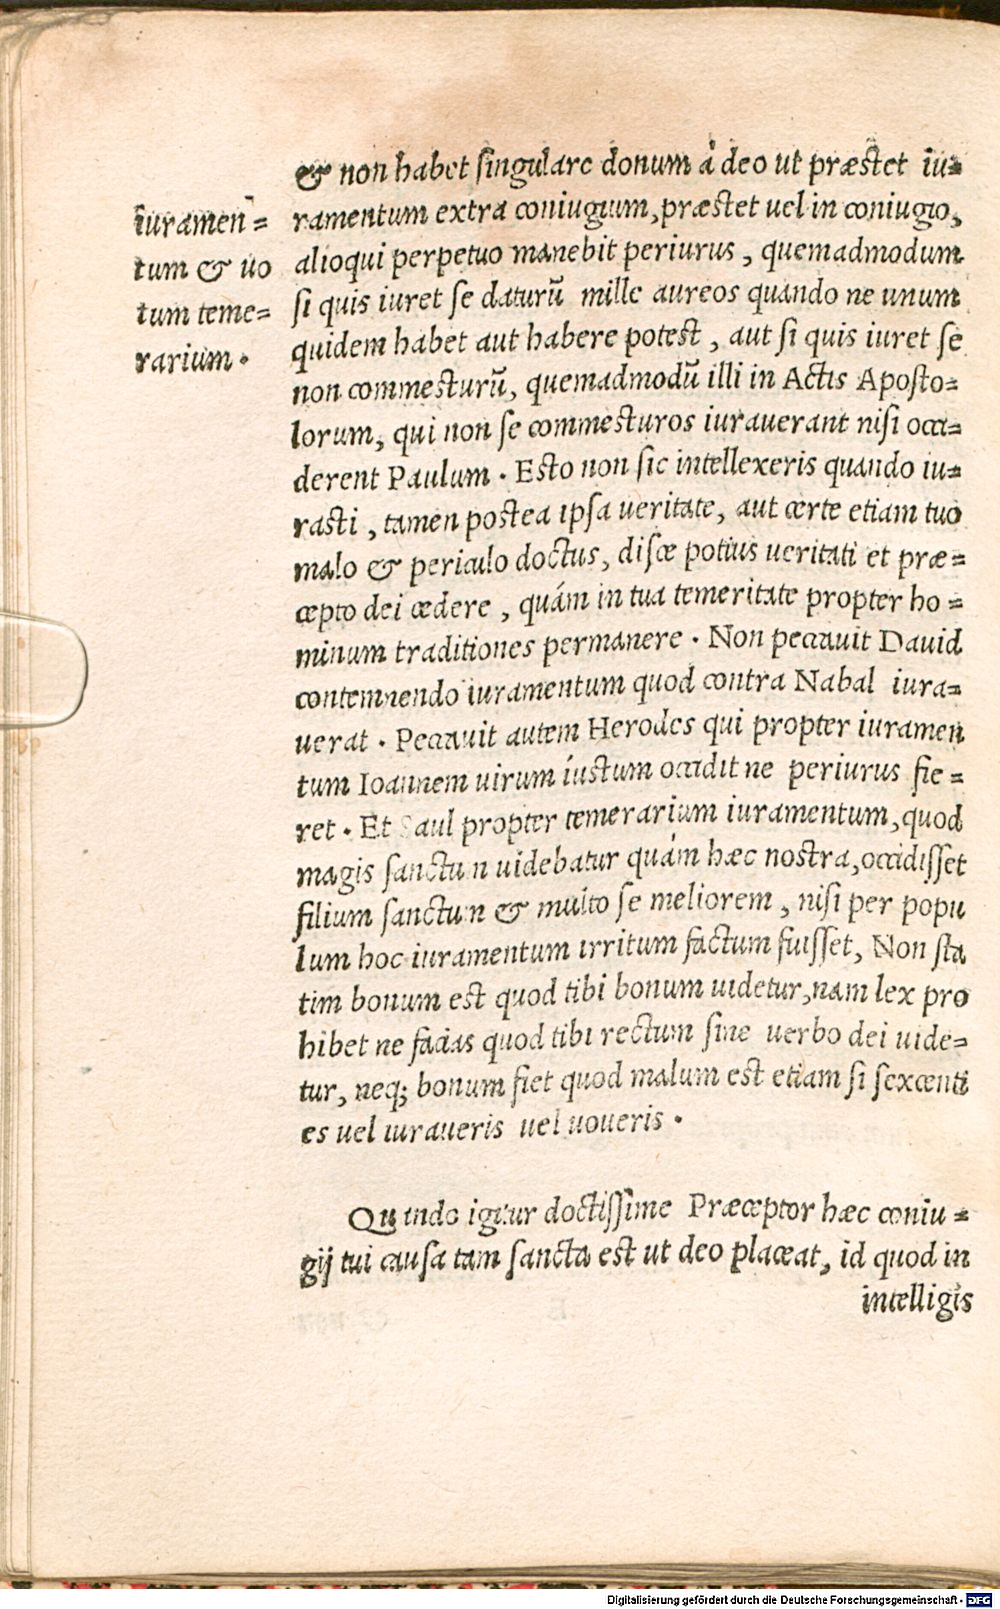 & non habet singulare donum à deo ut præstet iu=
ramentum extra coniugium, præstet uel in coniugio,
alioqui perpetuo manebit periurus, quemadmodum
si quis iuret se daturũ mille aureos quando ne unum
quidem habet aut habere potest, aut si quis iuret se
non commesturũ, quemadmodũ illi in Actis Aposto=
lorum, qui non se commesturos iurauerant nisi occi=
derent Paulum. Esto non sic intellexeris quando iu=
rasti, tamen postea ipsa ueritate, aut certe etiam tuo
malo & periculo doctus, disce potius ueritati et præ=
cepto dei cedere, quám in tua temeritate propter ho=
minum traditiones permanere. Non peccauit Dauid
contemnendo iuramentum quod contra Nabal iura=
uerat. Peccauit autem Herodes qui propter iuramen
tum Ioannem uirum iustum occidit ne periurus fie=
ret. Et Saul propter temerarium iuramentum, quod
magis sanctum uidebatur quám hæc nostra, occidisset
filium sanctum & multo se meliorem, nisi per popu
lum hoc iuramentum irritum factum fuisset, Non sta
tim bonum est quod tibi bonum uidetur, nam lex pro
hibet ne facias quod tibi rectum sine uerbo dei uide=
tur, neq; bonum fiet quod malum est etiam si sexcenti
es uel iuraueris uel uoueris.
iuramen=
tum & uo
tum teme=
rarium.
Quando igitur doctissime Præceptor hæc coniu=
gij tui causa tam sancta est ut deo placeat, id quod in
intelligis
Digitalisierung gefördert durch die Deutsche Forschungsgemeinschaft - DFG